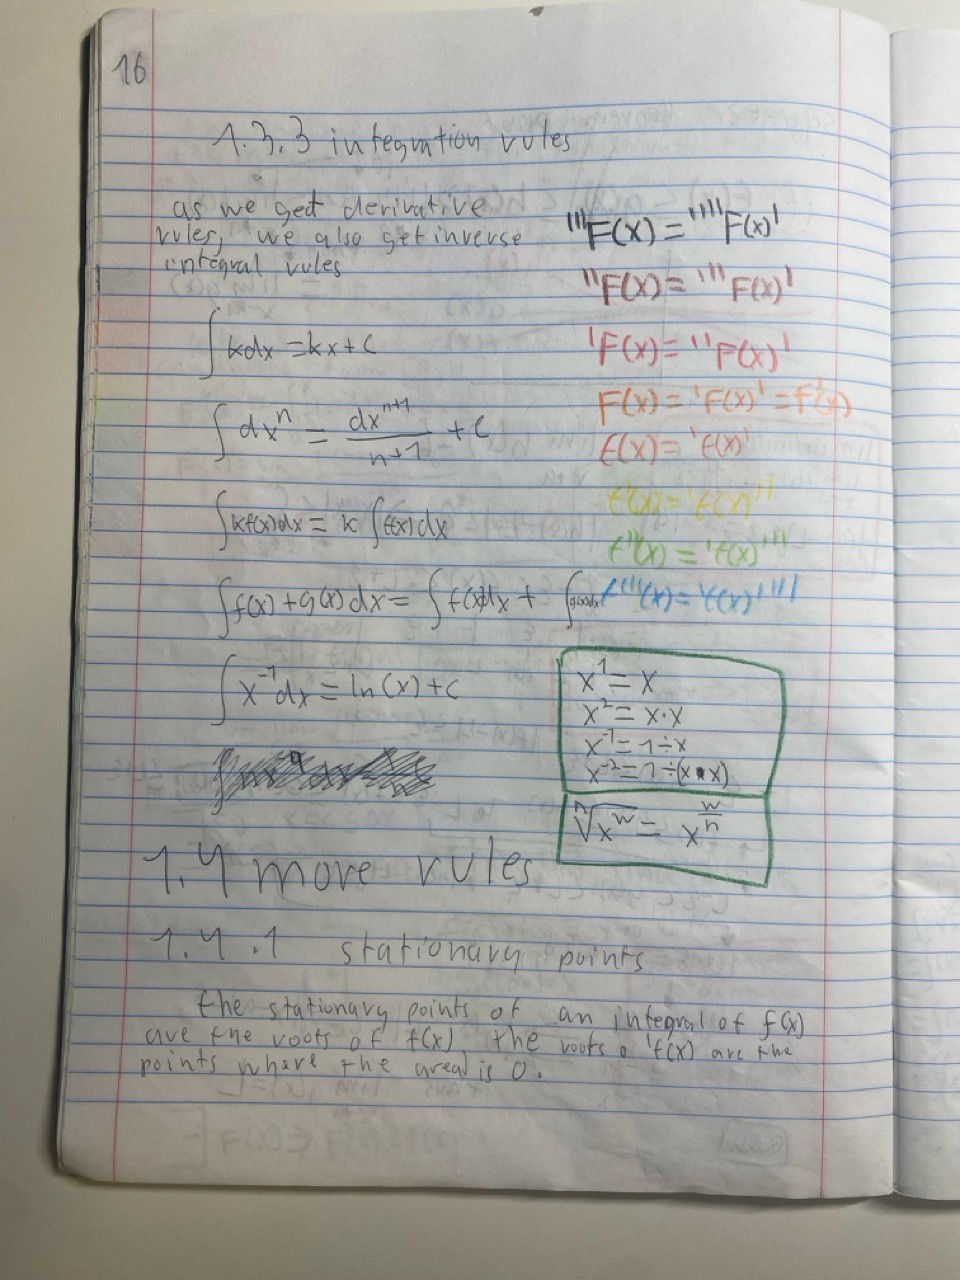 16
1.3.3 integration rules
as we get derivative
rules, we also get inverse
integral rules
∫kdx = kx+c
∫dxⁿ = dxⁿ⁺¹/n+1 + c
∫kf(x)dx = k∫f(x)dx
∫f(x)+g(x)dx = ∫f(x)dx + ∫g(x)dx
∫x⁻¹dx = ln(x)+c
'''F(x) = ''''F(x)'
''F(x) = '''F(x)'
'F(x) = ''F(x)'
F(x) = 'F(x)' = F'(x)
f(x) = 'f(x)'
f'(x) = 'f(x)''
f''(x) = 'f(x)'''
f'''(x) = 'f(x)''''
x¹ = x
x² = x·x
x⁻¹ = 1÷x
x⁻² = 1÷(x·x)
ⁿ√xʷ = x^(w/n)
1.4 more rules
1.4.1 stationary points
the stationary points of an integral of f(x)
are the roots of f(x) the roots o 'f(x) are the
points where the area is 0.